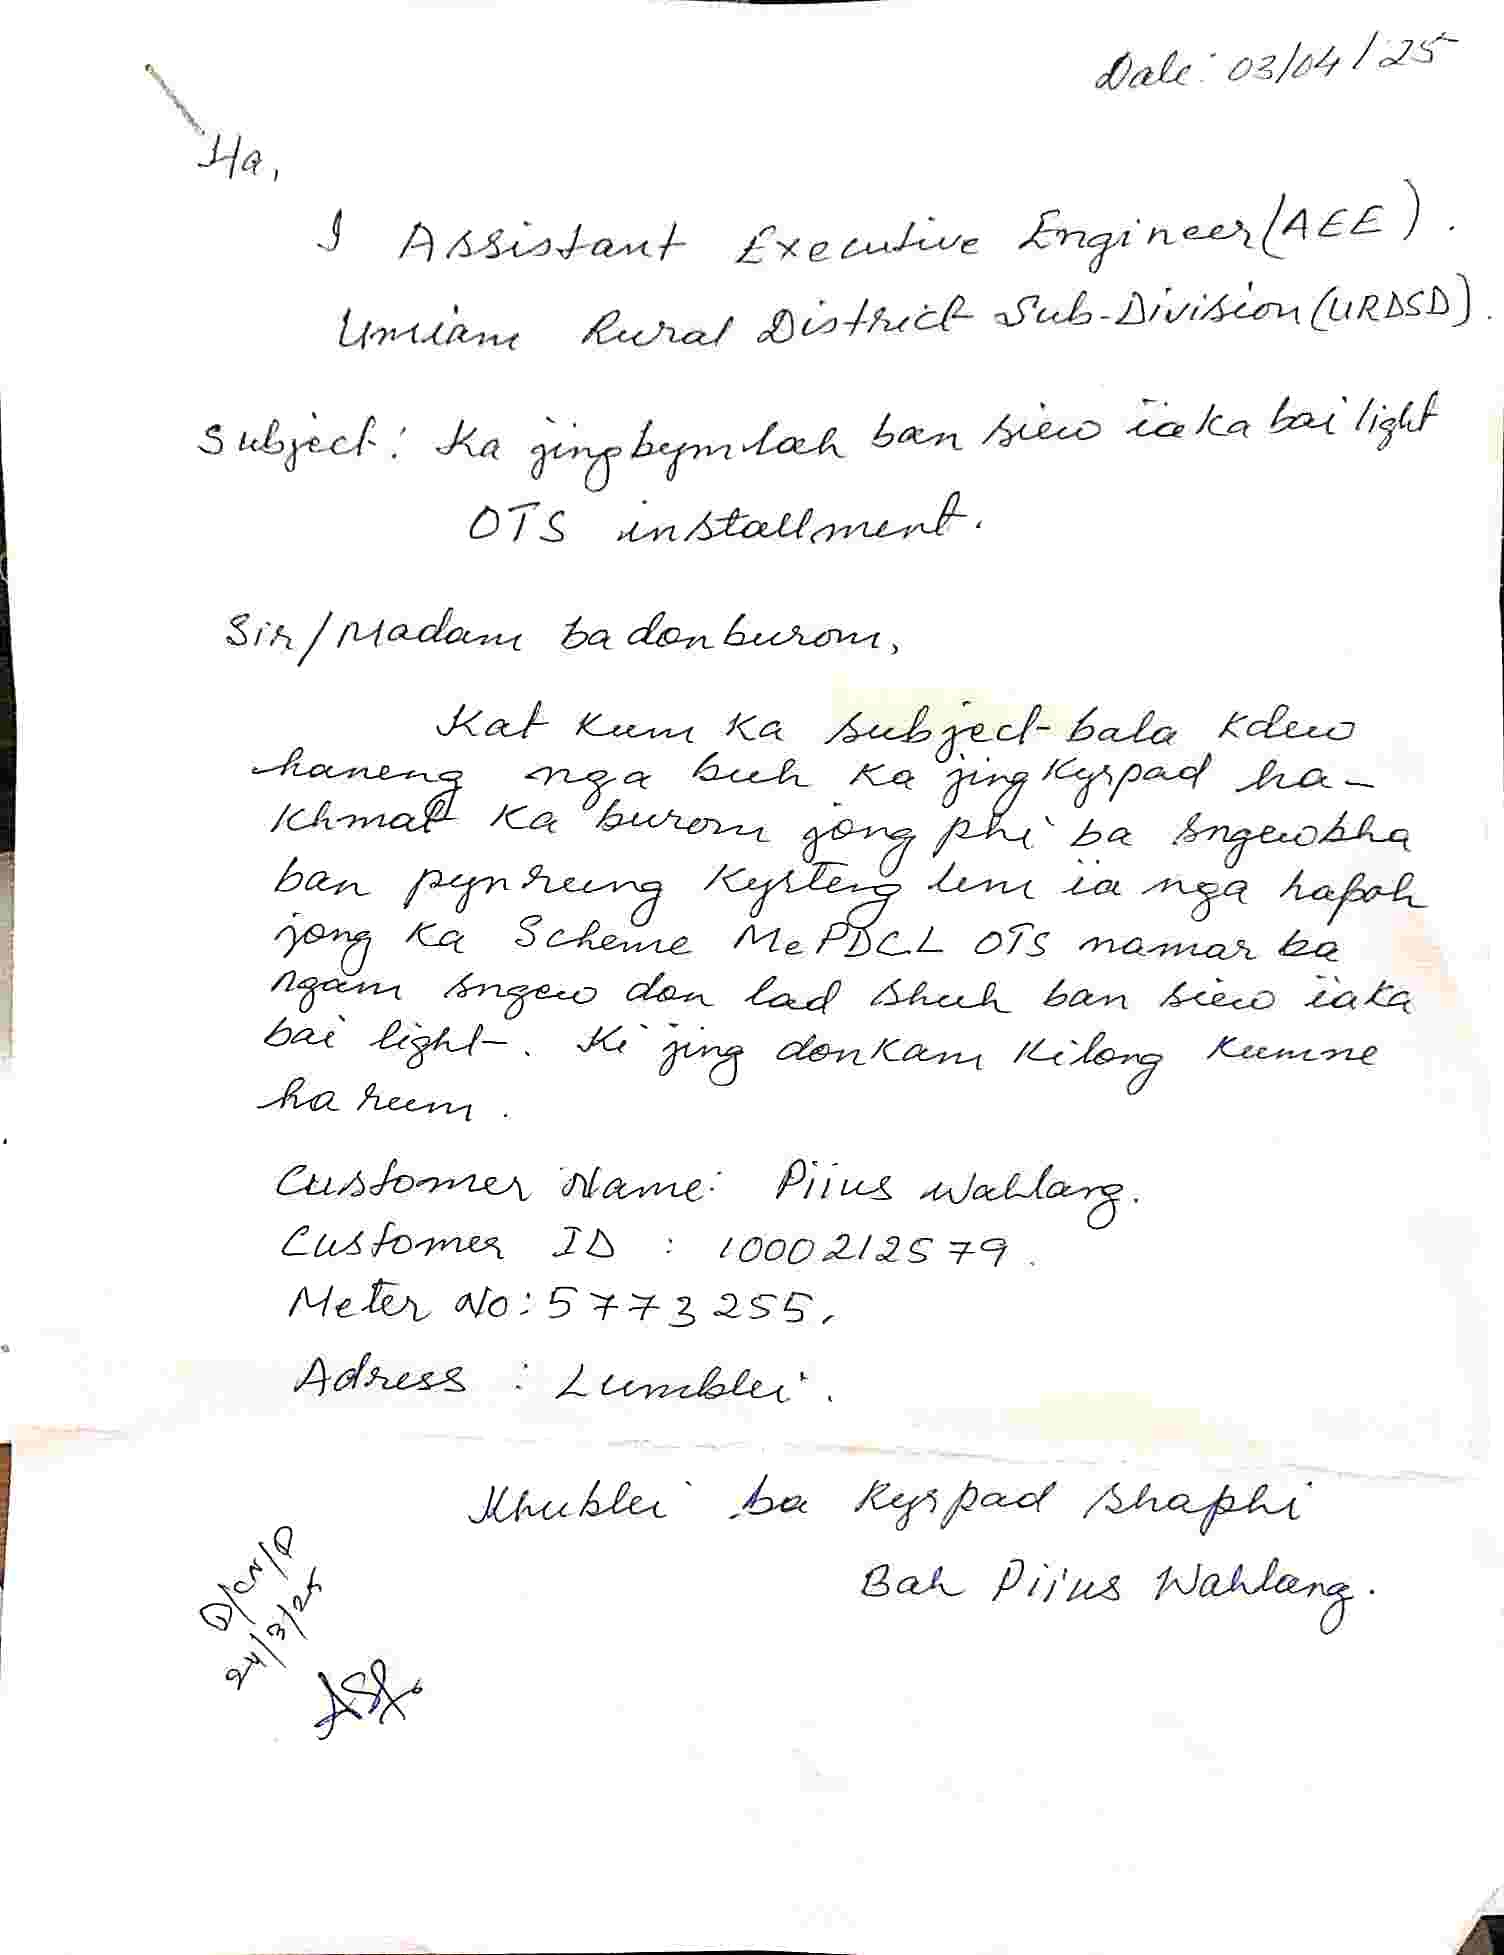 Date: 03/04/25
Ha,
I Assistant Executive Engineer (AEE).
Umiam Rural District Sub-Division (URDSD).
Subject: Ka jingbymlah ban siew ïaka bai light
OTS installment.
Sir/Madam badonburom,
Kat kum ka subject bala kdew
haneng nga buh ka jingkyrpad ha-
khmat ka burom jong phi ba sngewbha
ban pynrung kyrteng lem ïa nga hapoh
jong ka Scheme MePDCL OTS namar ba
ngam sngew don lad shuh ban siew ïaka
bai light. Ki jing donkam kilong kumne
harum.
Customer Name: Piius Wahlang.
Customer ID : 1000212579.
Meter No: 5773255.
Adress : Lumblei.
Khublei ba kyrpad shaphi
Bah Piius Wahlang.
24/3/25